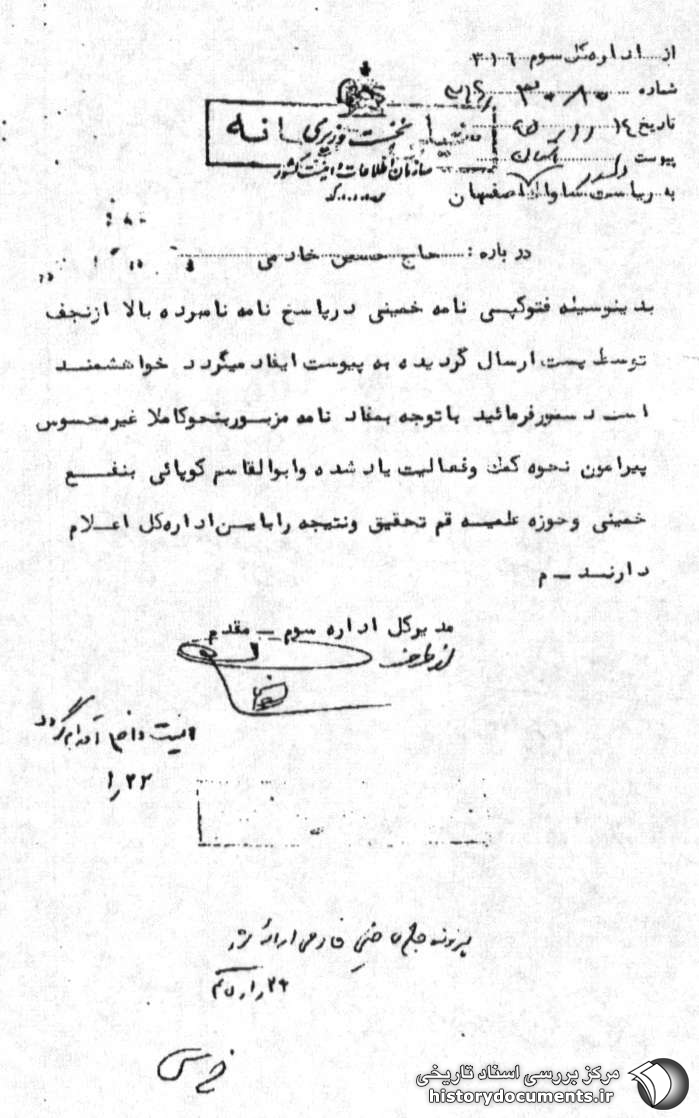 از اداره کل سوم ۳۱۶
شماره ۳۰/۸۰
تاریخ
پیوست
نخست وزیری
سازمان اطلاعات و امنیت کشور
به ریاست ساواک اصفهان
درباره : حاج حسین خادمی
بدینوسیله فتوکپی نامه خمینی درپاسخ نامه نامبرده بالا ازنجف
توسط پست ارسال گردیده به پیوست ایفاد میگردد خواهشمند
است دستورفرمائید باتوجه بمفاد نامه مزبوربنحوکاملا غیرمحسوس
پیرامون نحوه کمک وفعالیت یاد شده وابوالقاسم کوپائی بنفع
خمینی وحوزه علمیه قم تحقیق ونتیجه راباین اداره کل اعلام
دارند ـ م
مدیرکل اداره سوم ـ مقدم
از طرف
امنیت داخلی اقدام گردد
۱/۲۲
مرکز بررسی اسناد تاریخی
historydocuments.ir